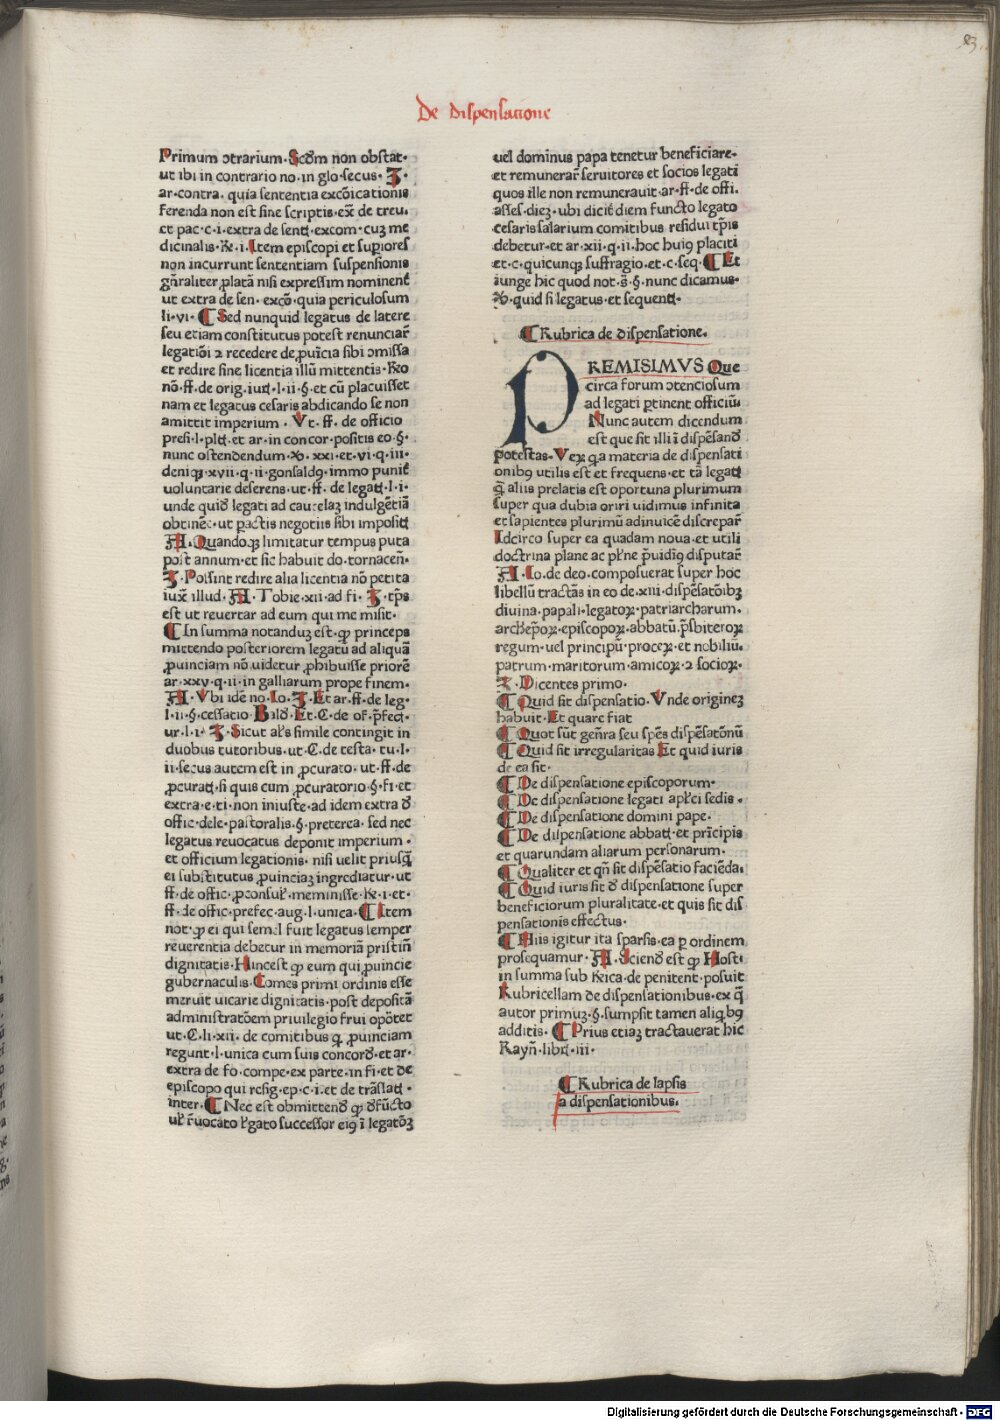 De dispensatione
Primum ↄtrarium. Scd̄m non obstat.
ut ibi in contrario no. in glo. secus. I.
ar. contra. quia sententia excōicationis
ferenda non est sine scriptis. ex̄ de treu.
et pac. c. i. extra de sent̄. excom. cuꝫ me
dicinalis. R. i. Item episcopi et suꝑiores
non incurrunt sententiam suspensionis
gn̄raliter ꝓlatā nisi expressim nominent̄
ut extra de sen. excō. quia periculosum
li. vi. ¶ Sed nunquid legatus de latere
seu etiam constitutus potest renunciar̄
legatiōi ⁊ recedere de ꝓuīcia sibi ↄmissa
et redire sine licentia illū mittentis. Rō
nō. ff. de orig. iurꝭ. l. ii. §. et cū placuisset
nam et legatus cesaris abdicando se non
amittit imperium. Vt. ff. de officio
presi. l. pltꝭ. et ar. in concor. positis eo. §.
nunc ostendendum. xͦ. xxi. et. vi. q. iii.
deniqꝫ. xvii. q. ii. gonsaldꝰ. immo punit̄
voluntarie deserens. ut. ff. de legatꝭ. l. i.
unde quid̄ legati ad cautelaꝫ indulgētiā
obtinēt. ut ꝑactis negotiis sibi impositꝭ
A. Quandoqꝫ limitatur tempus puta
post annum. et sic habuit do. tornaceñ.
I. Possint redire alia licentia nō petita
iux̄ illud. A. Tobie. xii. ad fi. I. tp̄s
est ut reuertar ad eum qui me misit.
¶ In summa notanduꝫ est. ꝙ princeps
mittendo posteriorem legatū ad aliquā
ꝓuinciam nō uidetur ꝓhibuisse priorē
ar. xxv. q. ii. in galliarum prope finem.
A. Vbi idē no. Io. I. Et ar. ff. de leg.
l. ii. §. cessatio. Bald̄. Et. C. de of. p̄fect.
ur. l. i. I. Sicut al̄s simile contingit in
duobus tutoribus. ut. C. de testa. tu. l.
ii. secus autem est in ꝓcurato. ut. ff. de
ꝓcuratꝭ. si quis cum ꝓcuratorio. §. fi. et
extra. e. ti. non iniuste. ad idem extra d̄
offic. dele. pastoralis. §. preterea. sed nec
legatus reuocatus deponit imperium.
et officium legationis. nisi uelit priusq̄
ei substitutus ꝓuinciaꝫ ingrediatur. ut
ff. de offic. ꝓconsul̄. meminisse. R. i. et.
ff. de offic. prefec. aug. l. unica. ¶ Item
not. ꝙ ei qui semel fuit legatus semper
reuerentia debetur in memoriā pristiñ
dignitatis. Hinc est ꝙ eum qui ꝓuincie
gubernaculis. Comes primi ordinis esse
meruit uicarie dignitatis. post depositā
administratōem priuilegio frui opꝫtet
ut. C. li. xii. de comitibus q̄ ꝓuinciam
regunt. l. unica cum suis concord̄. et ar.
extra de fo. compe. ex parte. in fi. et de
episcopo qui resig. ep. c. i. et de trāslatꝭ.
inter. ¶ Nec est obmittend̄ ꝙ d̄fūcto
ul̄ r̄uocato l̄gato successor eiꝰ ī legatōꝫ
uel dominus papa tenetur beneficiare.
et remunerar̄ seruitores et socios legati
quos ille non remunerauit. ar. ff. de offi.
asses. dieꝫ. ubi dicit̄ diem functo legato
cesaris salarium comitibus residui tp̄is
debetur. et ar. xii. q. ii. hoc huiꝰ placiti
et. c. quicunqꝫ suffragio. et. c. seq. ¶ Et
iunge hic quod not. s̄. §. nunc dicamus.
xͦ. quid si legatus. et sequentꝭ.
¶ Rubrica de dispensatione.
PREMISIMVS Que
circa forum ↄtenciosum
ad legati ꝑtinent officiū.
Nunc autem dicendum
est que sit illi ī dispēsand̄
potestas. Veꝝ q̄a materia de dispensati
onibꝰ utilis est et frequens. et tā legatꝭ
q̄ aliis prelatis est oportuna plurimum
super qua dubia oriri uidimus infinita
et sapientes plurimū adinuicē discrepar̄
Idcirco super ea quadam noua. et utili
doctrina plane ac pl̄ne ꝓuidiꝰ disputar̄
A. Io. de deo. composuerat super hoc
libellū tractās in eo de. xiii. dispēsatōibꝫ
diuina. papali. legatoꝝ. patriarcharum.
archep̄oꝝ. episcopoꝝ. abbatū. p̄sbiteroꝝ
regum. uel principū. proceꝝ. et nobiliū.
patrum. maritorum. amicoꝝ. ⁊ socioꝝ.
I. Dicentes primo.
¶ Quid sit dispensatio. Vnde origineꝫ
habuit. Et quare fiat
¶ Quot sūt gen̄ra seu sp̄es dispēsatōnū
¶ Quid sit irregularitas Et quid iuris
de ea sit.
¶ De dispensatione episcoporum.
¶ De dispensatione legati apl̄ci sedis.
¶ De dispensatione domini pape.
¶ De dispensatione abbatꝭ. et prīcipis
et quarundam aliarum personarum.
¶ Qualiter et qn̄ sit dispēsatio faciēda.
¶ Quid iuris sit d̄ dispensatione super
beneficiorum pluralitate. et quis sit dis
pensationis effectus.
¶ Hiis igitur ita sparsis. ea ꝑ ordinem
prosequamur. A. Sciend̄ est ꝙ Host.
in summa sub Rica. de penitent. posuit
Rubricellam de dispensationibus. ex q̄
autor primuꝫ. §. sumpsit tamen aliqꝫ bꝰ
additis. ¶ Prius etiaꝫ tractauerat hic
Rayñ. librꝭ. iii.
¶ Rubrica de lapsis
a dispensationibus.
Digitalisierung gefördert durch die Deutsche Forschungsgemeinschaft - DFG